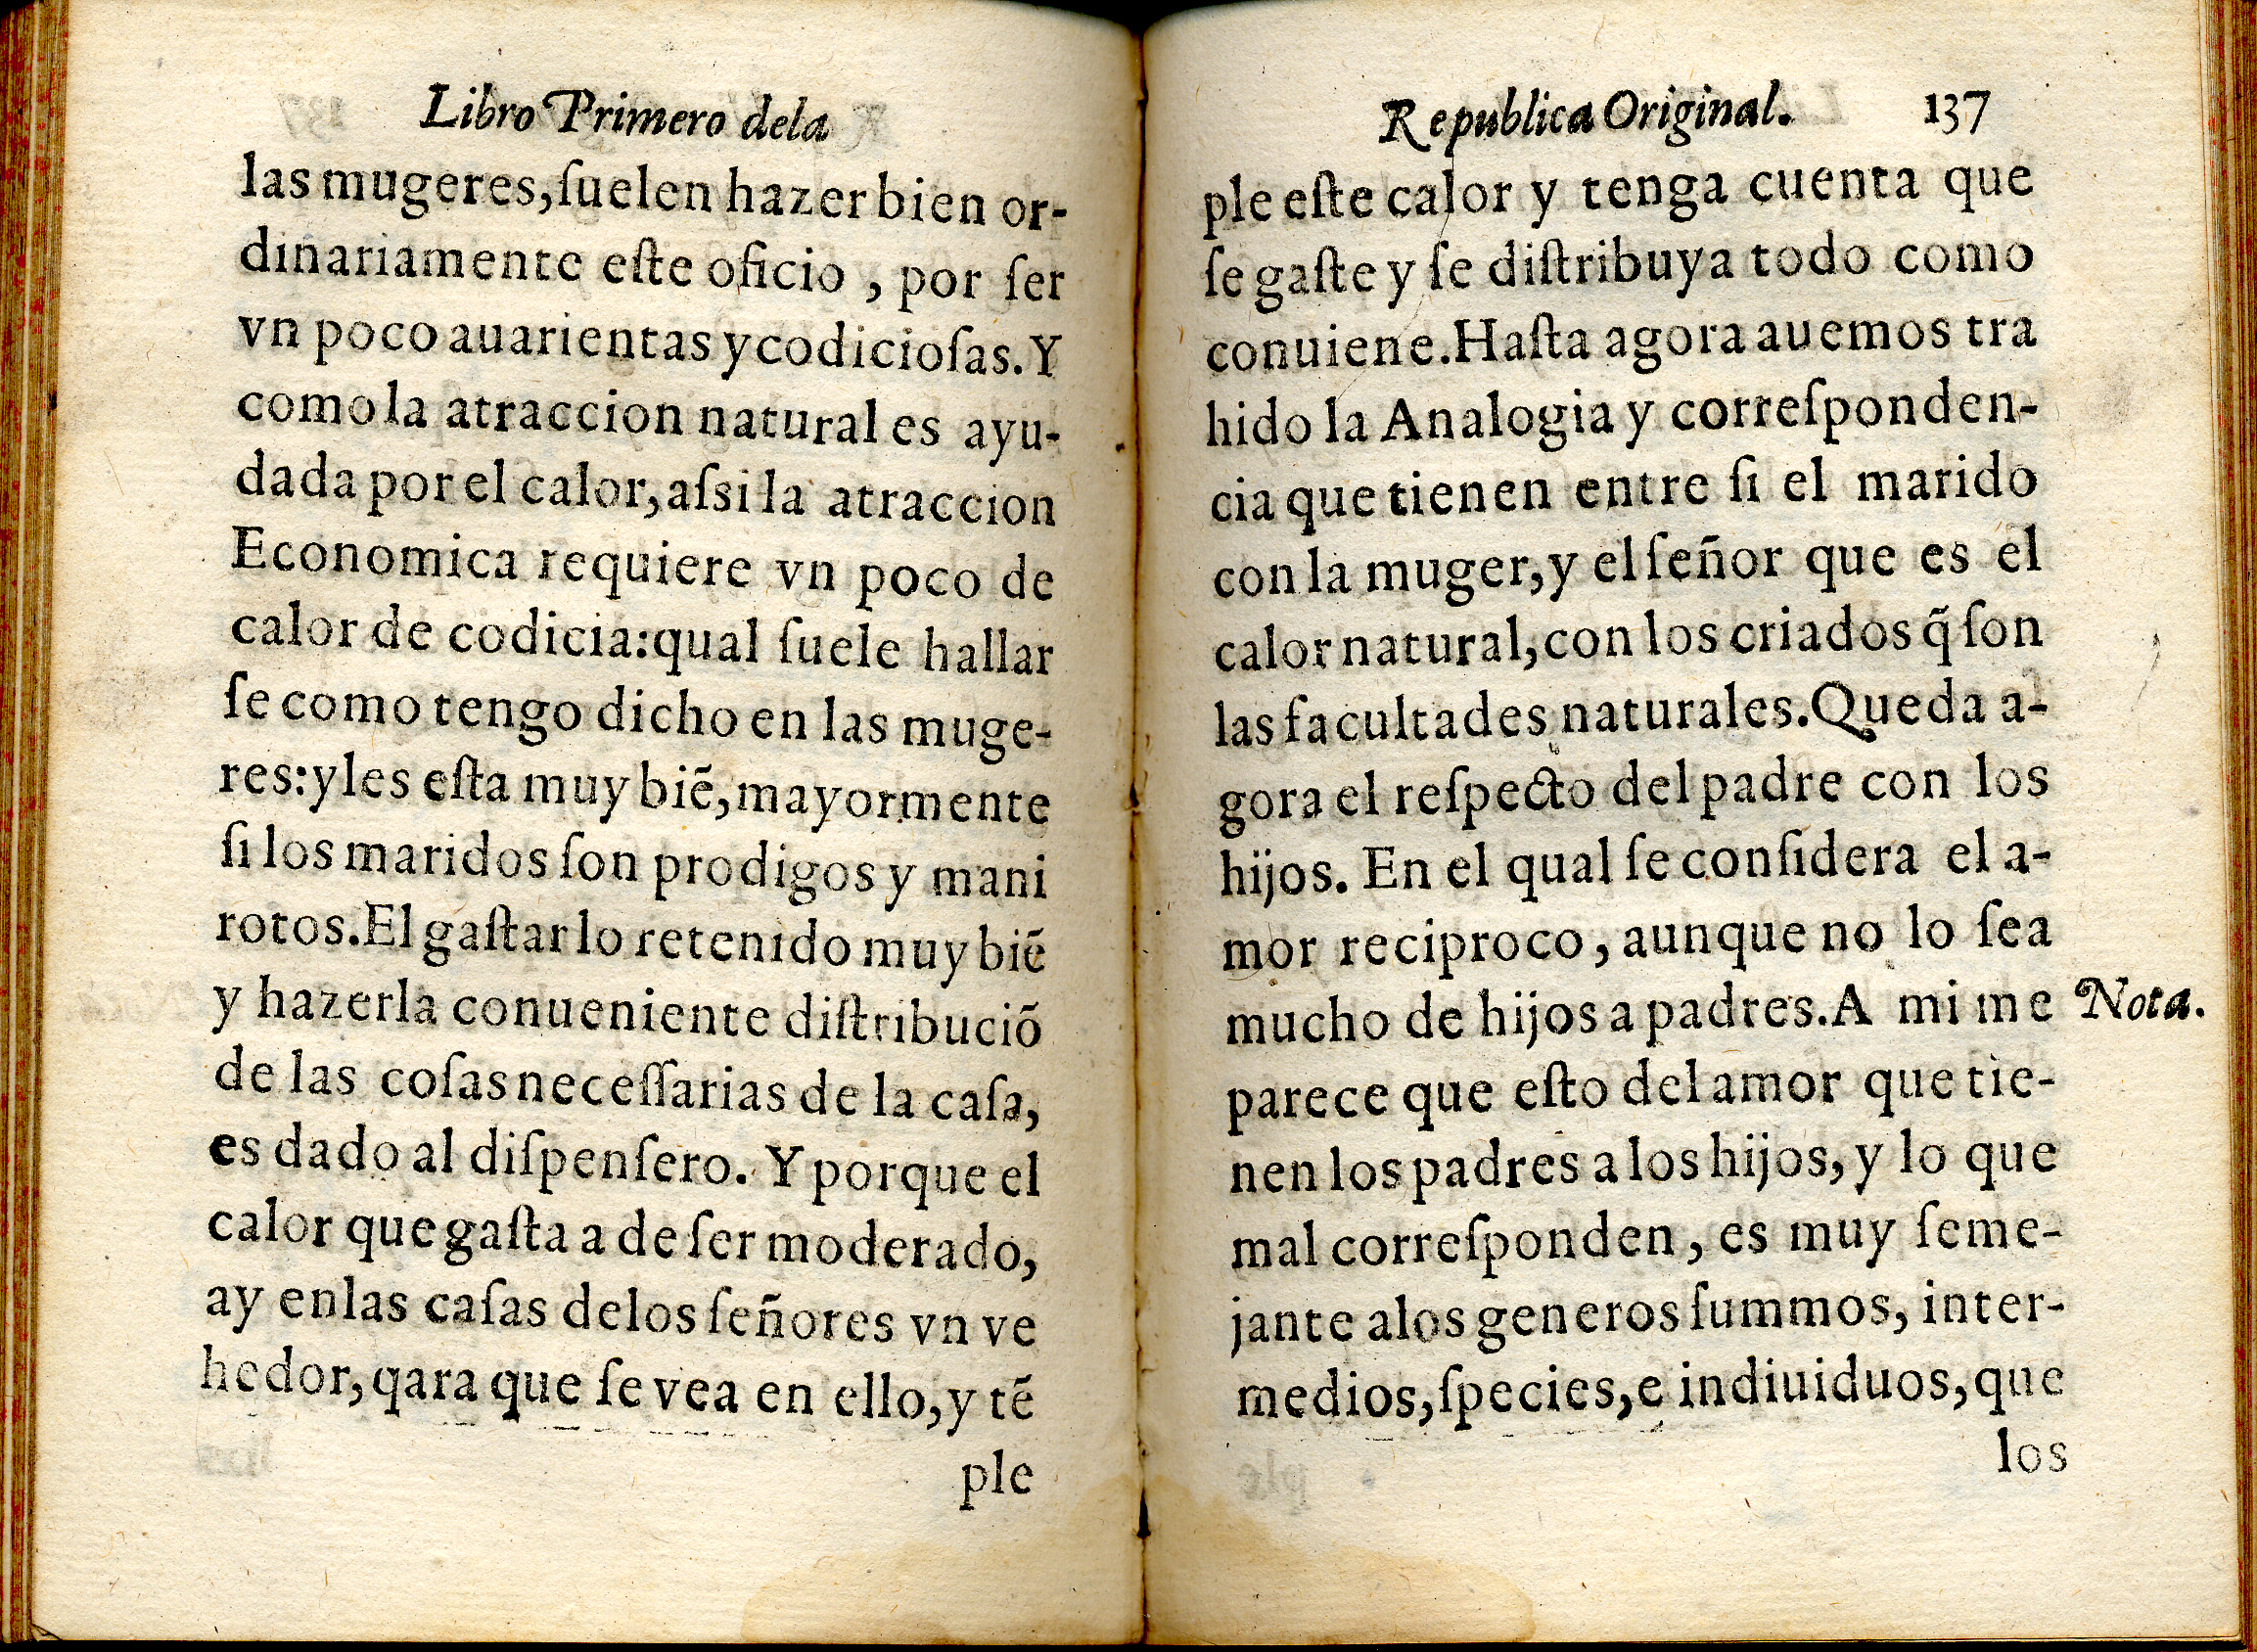 Libro Primero dela
las mugeres,ſuelen hazer bien or-
dinariamente eſte oficio , por ſer
vn poco auarientas y codicioſas. Y
como la atraccion natural es ayu-
dada por el calor,aſsi la atraccion
Economica requiere vn poco de
calor de codicia:qual ſuele hallar
ſe como tengo dicho en las muge-
res:y les eſta muy biẽ,mayormente
ſi los maridos ſon prodigos y mani
rotos.El gaſtar lo retenido muy biẽ
y hazerla conueniente diſtribuciõ
de las coſas neceſſarias de la caſa,
es dado al diſpenſero. Y porque el
calor que gaſta a de ſer moderado,
ay enlas caſas delos ſeñores vn ve
hedor,qara que ſe vea en ello,y tẽ
ple
Republica Original. 137
ple eſte calor y tenga cuenta que
ſe gaſte y ſe diſtribuya todo como
conuiene.Haſta agora auemos tra
hido la Analogia y correſponden-
cia que tienen entre ſi el marido
con la muger,y el ſeñor que es el
calor natural,con los criados q̃ ſon
las facultades naturales.Queda a-
gora el reſpecto del padre con los
hijos. En el qual ſe conſidera el a-
mor reciproco, aunque no lo ſea
mucho de hijos a padres.A mi me Nota.
parece que eſto del amor que tie-
nen los padres a los hijos, y lo que
mal correſponden, es muy ſeme-
jante alos generos ſummos, inter-
medios,ſpecies,e indiuiduos,que
los